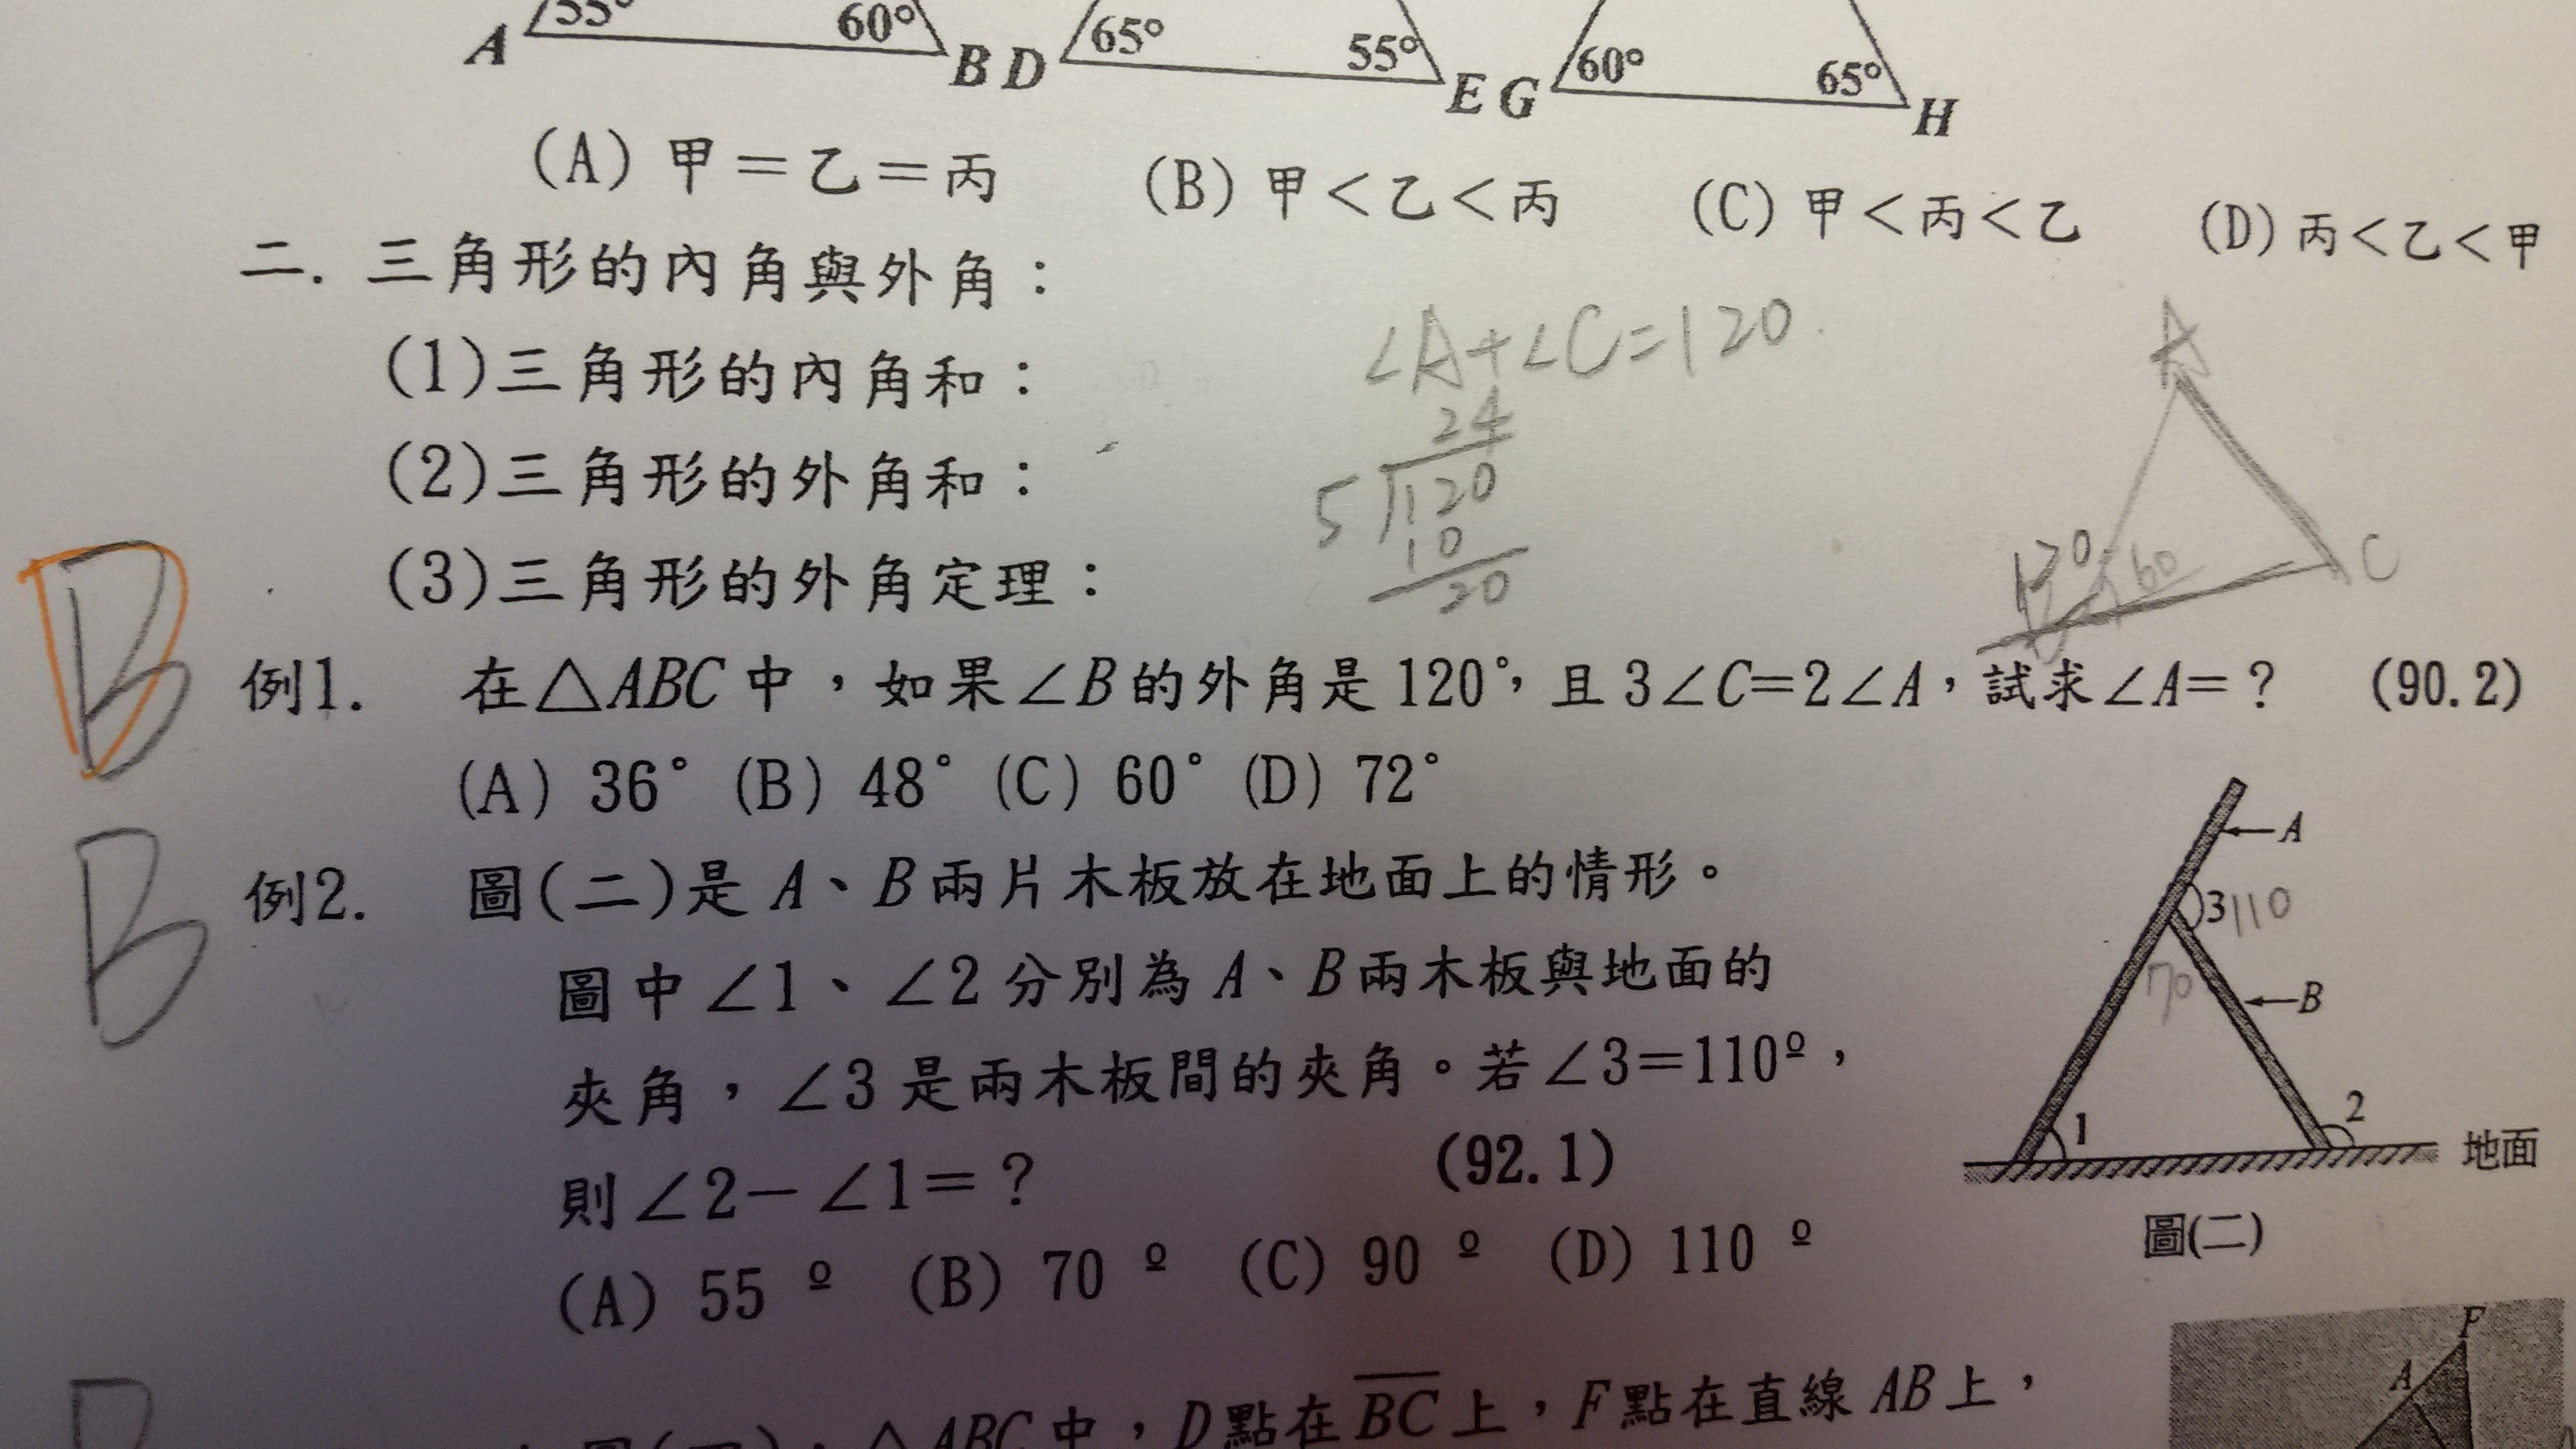 A 55° 60° B D 65° 55° E G 60° 65° H
(A) 甲＝乙＝丙 (B) 甲＜乙＜丙 (C) 甲＜丙＜乙 (D) 丙＜乙＜甲
二. 三角形的內角與外角：
(1)三角形的內角和：
∠A+∠C=120
A
24
(2)三角形的外角和：
5 120
10
20
120 60 C
B
(3)三角形的外角定理：
B
例1. 在△ABC中，如果∠B的外角是120°，且3∠C=2∠A，試求∠A=？ (90.2)
(A) 36° (B) 48° (C) 60° (D) 72°
B
例2. 圖(二)是A、B兩片木板放在地面上的情形。
圖中∠1、∠2分別為A、B兩木板與地面的
夾角，∠3是兩木板間的夾角。若∠3=110º，
則∠2－∠1=？ (92.1)
(A) 55 º (B) 70 º (C) 90 º (D) 110 º
A
3 110
70
B
1
2
地面
圖(二)
△ABC中，D點在BC上，F點在直線AB上，
F
A